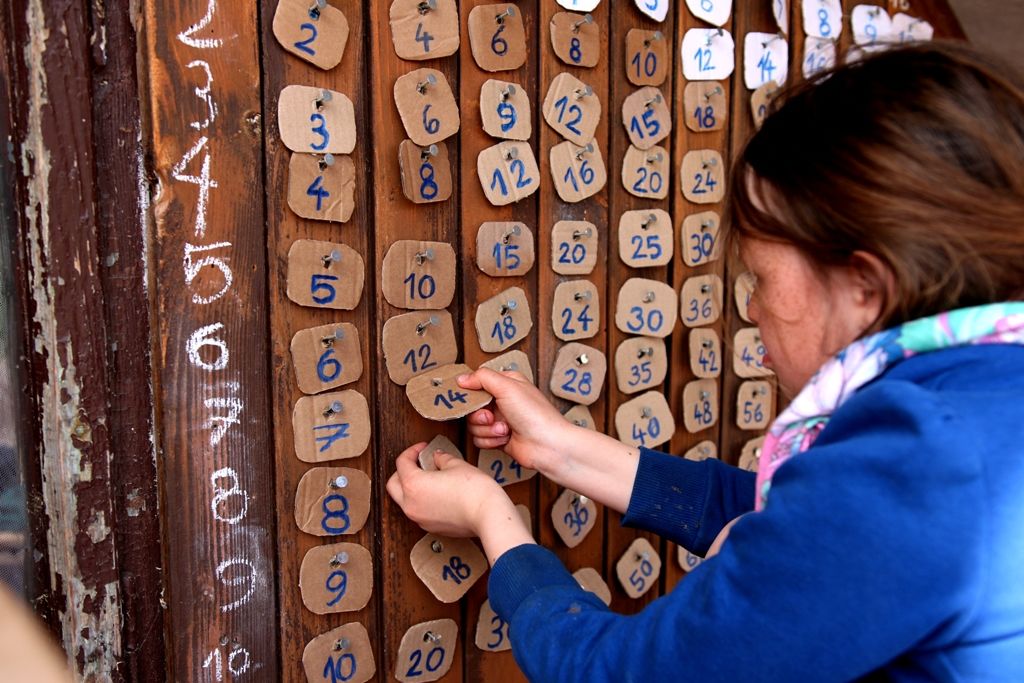 8 9
2 2 4 6 8 10 12 14 16
3 3 6 9 12 15 18
4 4 8 12 16 20 24
5 5 10 15 20 25 30
6 6 12 18 24 30 36
7 7 14 28 35 42
8 8 24 40 48 56
9 9 18 36
10 10 20 50